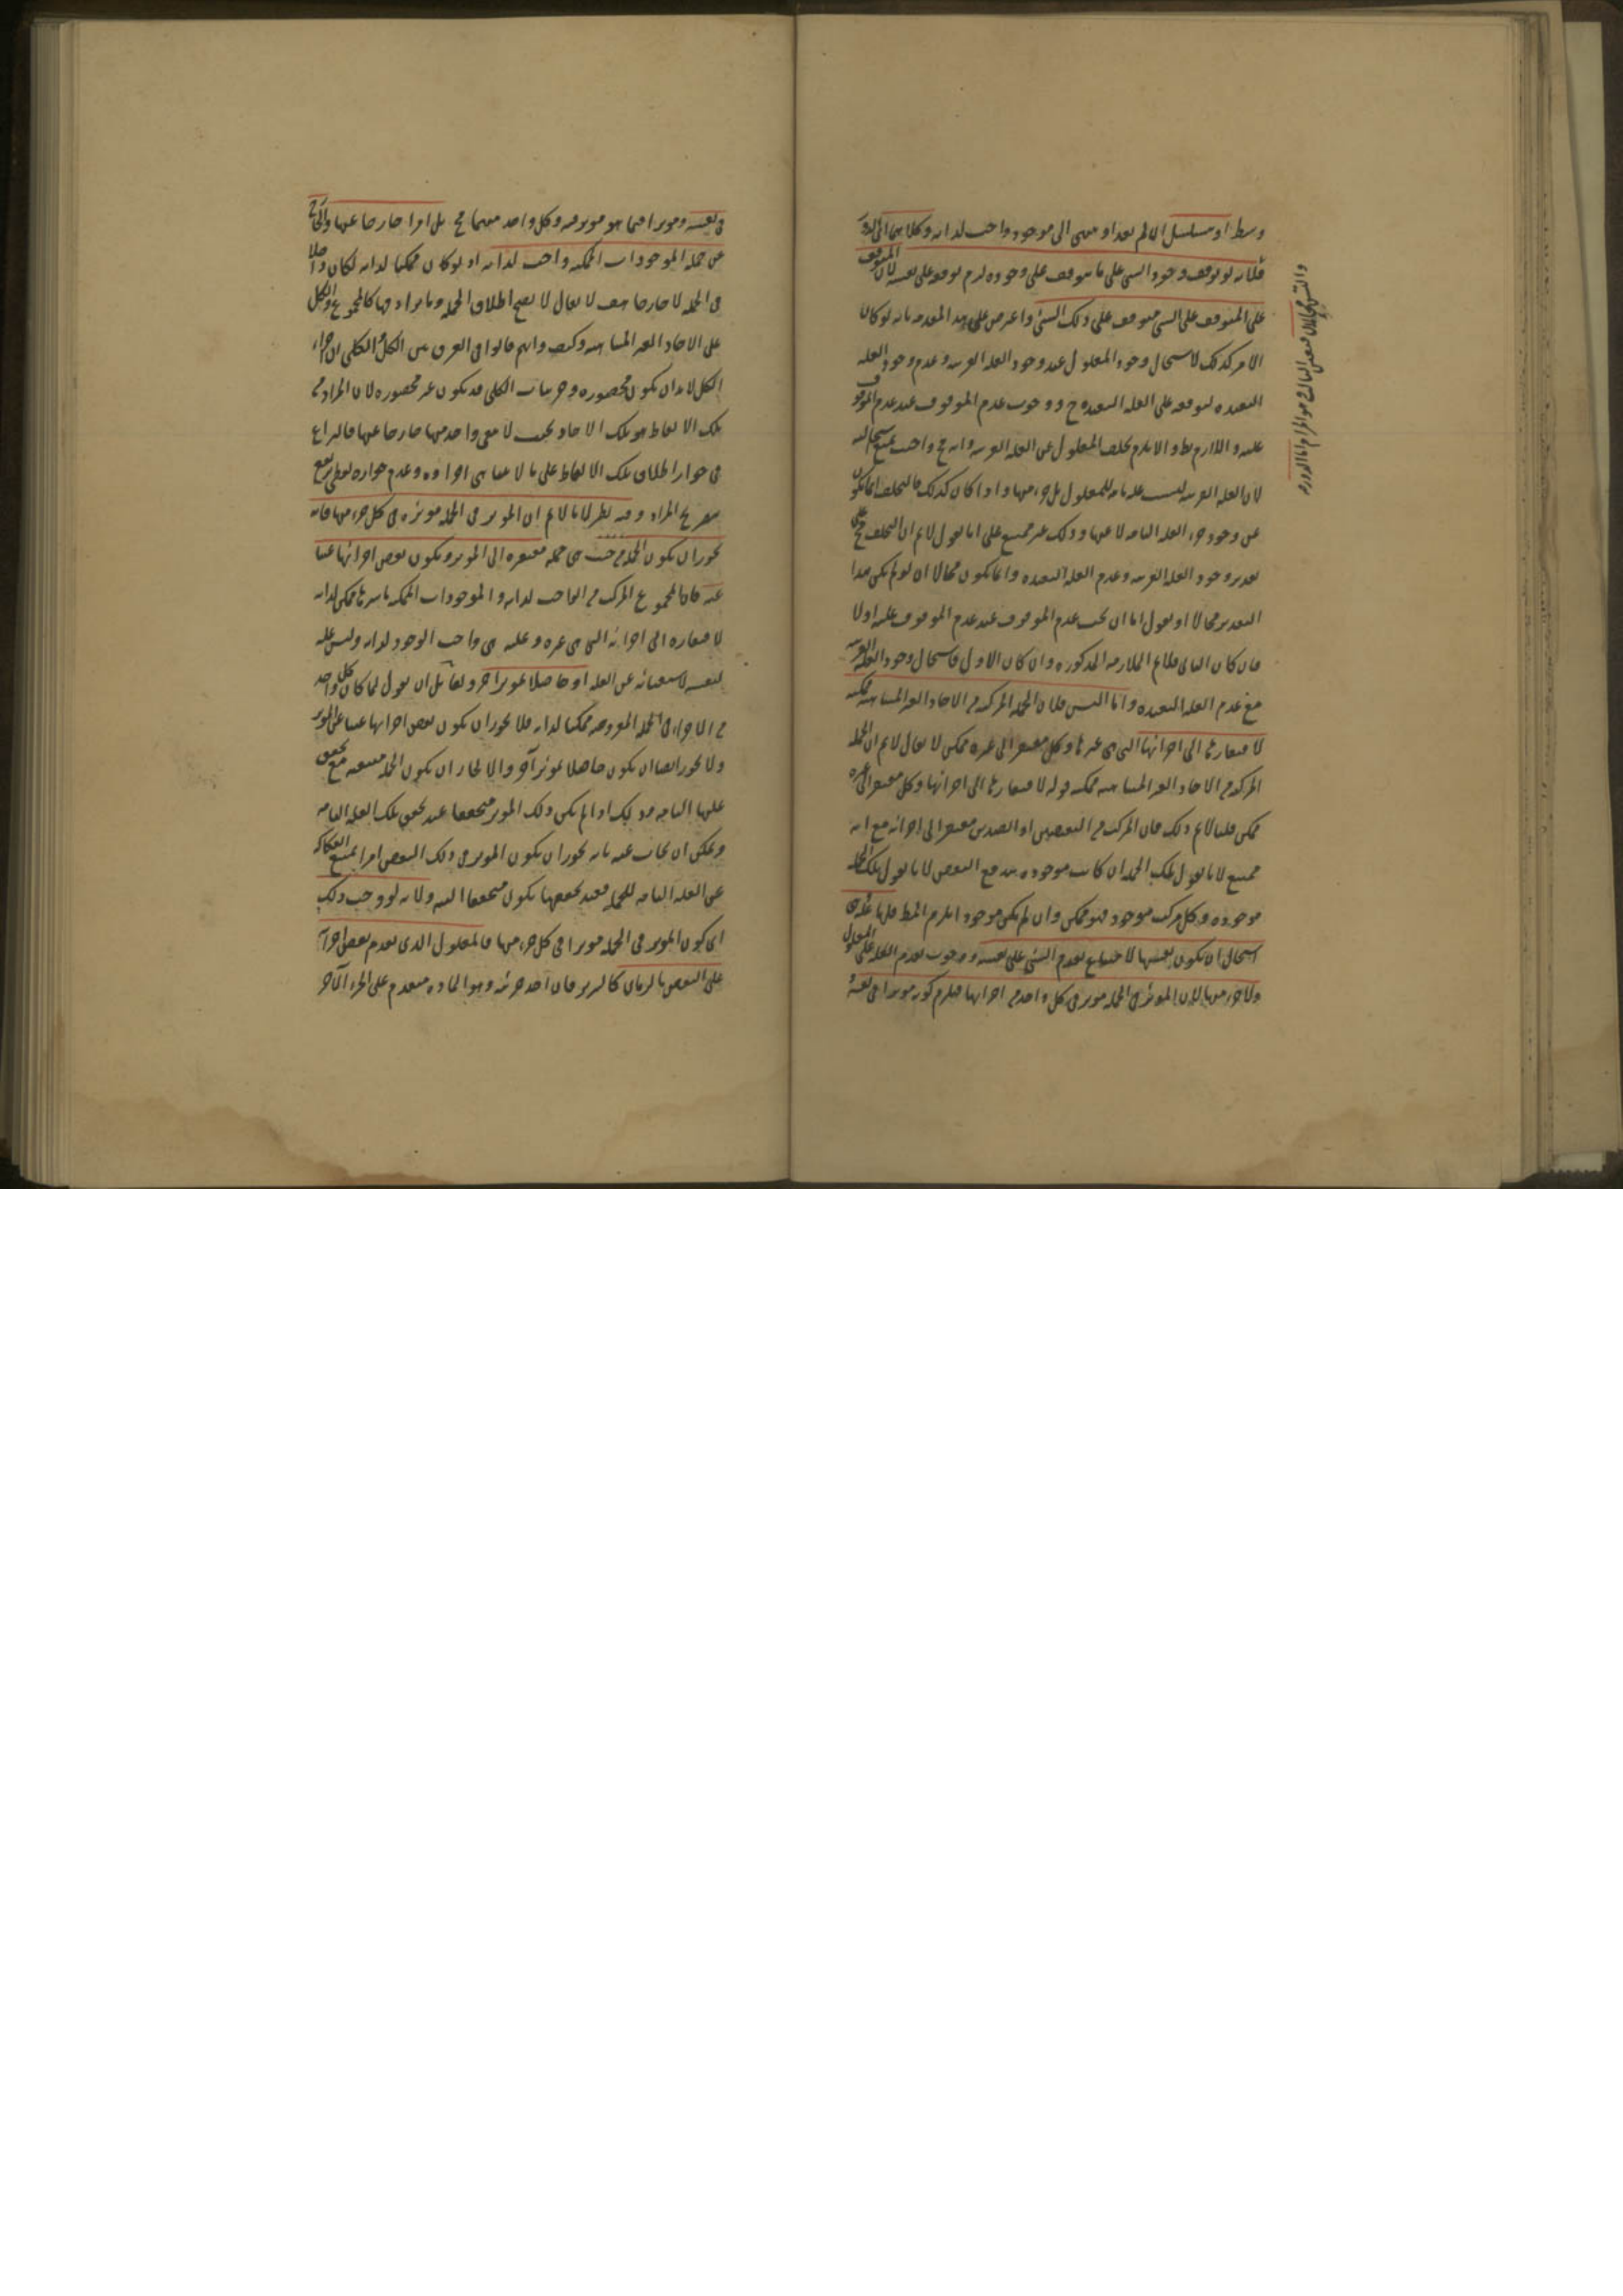 وسط او يتسلسل ان لم يعد او ينتهى الى موجود واجب لذاته وكلاهما محال اما الدور
فلانه لو توقف وجود الشى على ما يتوقف على وجوده لزم توقفه على نفسه لان المتوقف
على المتوقف على الشى متوقف على ذلك الشئ واعترض على هذه المقدمه بانه لو كان
الامر كذلك لاستحال وجود المعلول عند وجود العله القريبه وعدم وجود العله
البعيده لتوقفه على العله البعيده ح ووجوب عدم الموقوف عند عدم الموقوف
عليه واللازم بط والا يلزم تخلف المعلول عن العله القريبه وانه ح واجب يمتنع
لان العله القريبه ليست عله تامه للمعلول بل جزء منها واذا كان كذلك فالتخلف انما يكون
عن وجود جزء العله التامه لا عنها وذلك غير ممتنع على انا نقول لانم ان التخلف مح على
تقدير وجود العله القريبه وعدم العله البعيده وانما يكون محالا ان لو لم يكن هذا
التقدير محالا او نقول اما ان يجب عدم الموقوف عند عدم الموقوف عليه اولا
فان كان الثانى فلانم الملازمه المذكوره وان كان الاول فاستحال وجود العله القريبه
مع عدم العله البعيده واما التس فلان الجمله المركبه من الاحاد الغير المتناهيه ممكنه
لافتقارها الى اجزائها التى هى غيرها وكل مفتقر الى غيره ممكن لا يقال لانم ان الجمله
المركبه من الاحاد الغير المتناهيه ممكنه قوله لافتقارها الى اجزائها وكل مفتقر الى غيره
ممكن قلنا لانم ذلك فان المركب من النقيضين او الضدين مفتقر الى اجزائه مع انه
ممتنع لانا نقول تلك الجمله ان كانت موجوده يندفع النقض لانا نقول تلك الجمله
موجوده وكل مركب موجود فهو ممكن وان لم يكن موجودا يلزم المط فلها عله
استحال ان يكون نفسها لامتناع تقدم الشئ على نفسه ووجوب تقدم العله على المعلول
ولا جزء منها لان المؤثر فى الجمله موثر فى كل واحد من اجزائها فيلزم كونه موثرا فى نفسه
فى نفسه وموثرا فيما هو موثر فيه وكل واحد منهما مح بل امرا خارجا عنها والخارج
عن جمله الموجودات الممكنه واجب لذاته اذ لو كان ممكنا لذاته لكان داخلا
فى الجمله لا خارجا هف لا يقال لا يصح اطلاق الجمله وما يرادفها كالمجموع والكل
على الاحاد الغير المتناهيه وكيف وانهم قالوا فى الفرق بين الكل والكلى ان اجزاء
الكل لابد ان يكون محصوره وجزئيات الكلى قد يكون غير محصوره لان المراد من
تلك الالفاظ هو تلك الاحاد بحيث لا يبقى واحد منها خارجا عنها فالنزاع
فى جواز اطلاق تلك الالفاظ على ما لا يتناهى اجزاؤه وعدم جوازه لفظى يرتفع
بصريح المراد وفيه نظر لانا لانم ان الموثر فى الجمله موثر فى كل جزء منها فانه
يجوز ان يكون الجمله من حيث هى جمله مفتقره الى الموثر ويكون بعض اجزائها غنيا
عنه فان المجموع المركب من الواجب لذاته والموجودات الممكنه باسرها ممكن لذاته
لافتقاره الى اجزائه التى هى غيره وعلته هى واجب الوجود لذاته وليس عله
لنفسه لاستغنائه عن العله او حاصلا بموثر اخر ولقائل ان يقول لما كان كل واحد
من الاجزاء فى الجمله المفروضه ممكنا لذاته فلا يجوز ان يكون بعض اجزائها غنيا عن الموثر
ولا يجوز ايضا ان يكون حاصلا بموثر آخر والا لجاز ان يكون الجمله ممتنعه مع تحقق
علتها التامه وذلك اذا لم يكن ذلك الموثر متحققا عند تحقق تلك العله التامه
ويمكن ان يجاب عنه بانه يجوز ان يكون الموثر فى ذلك البعض امرا يمتنع انفكاكه
عن العله التامه للجمله فعند تحققها يكون متحققا البته ولانه لو وجب ذلك
اى كون الموثر فى الجمله موثرا فى كل جزء منها فالمعلول الذى تقدم بعض اجزائه
على البعض بالزمان كالسرير فان احد جزئيه وهو الماده متقدم على الجزء الآخر